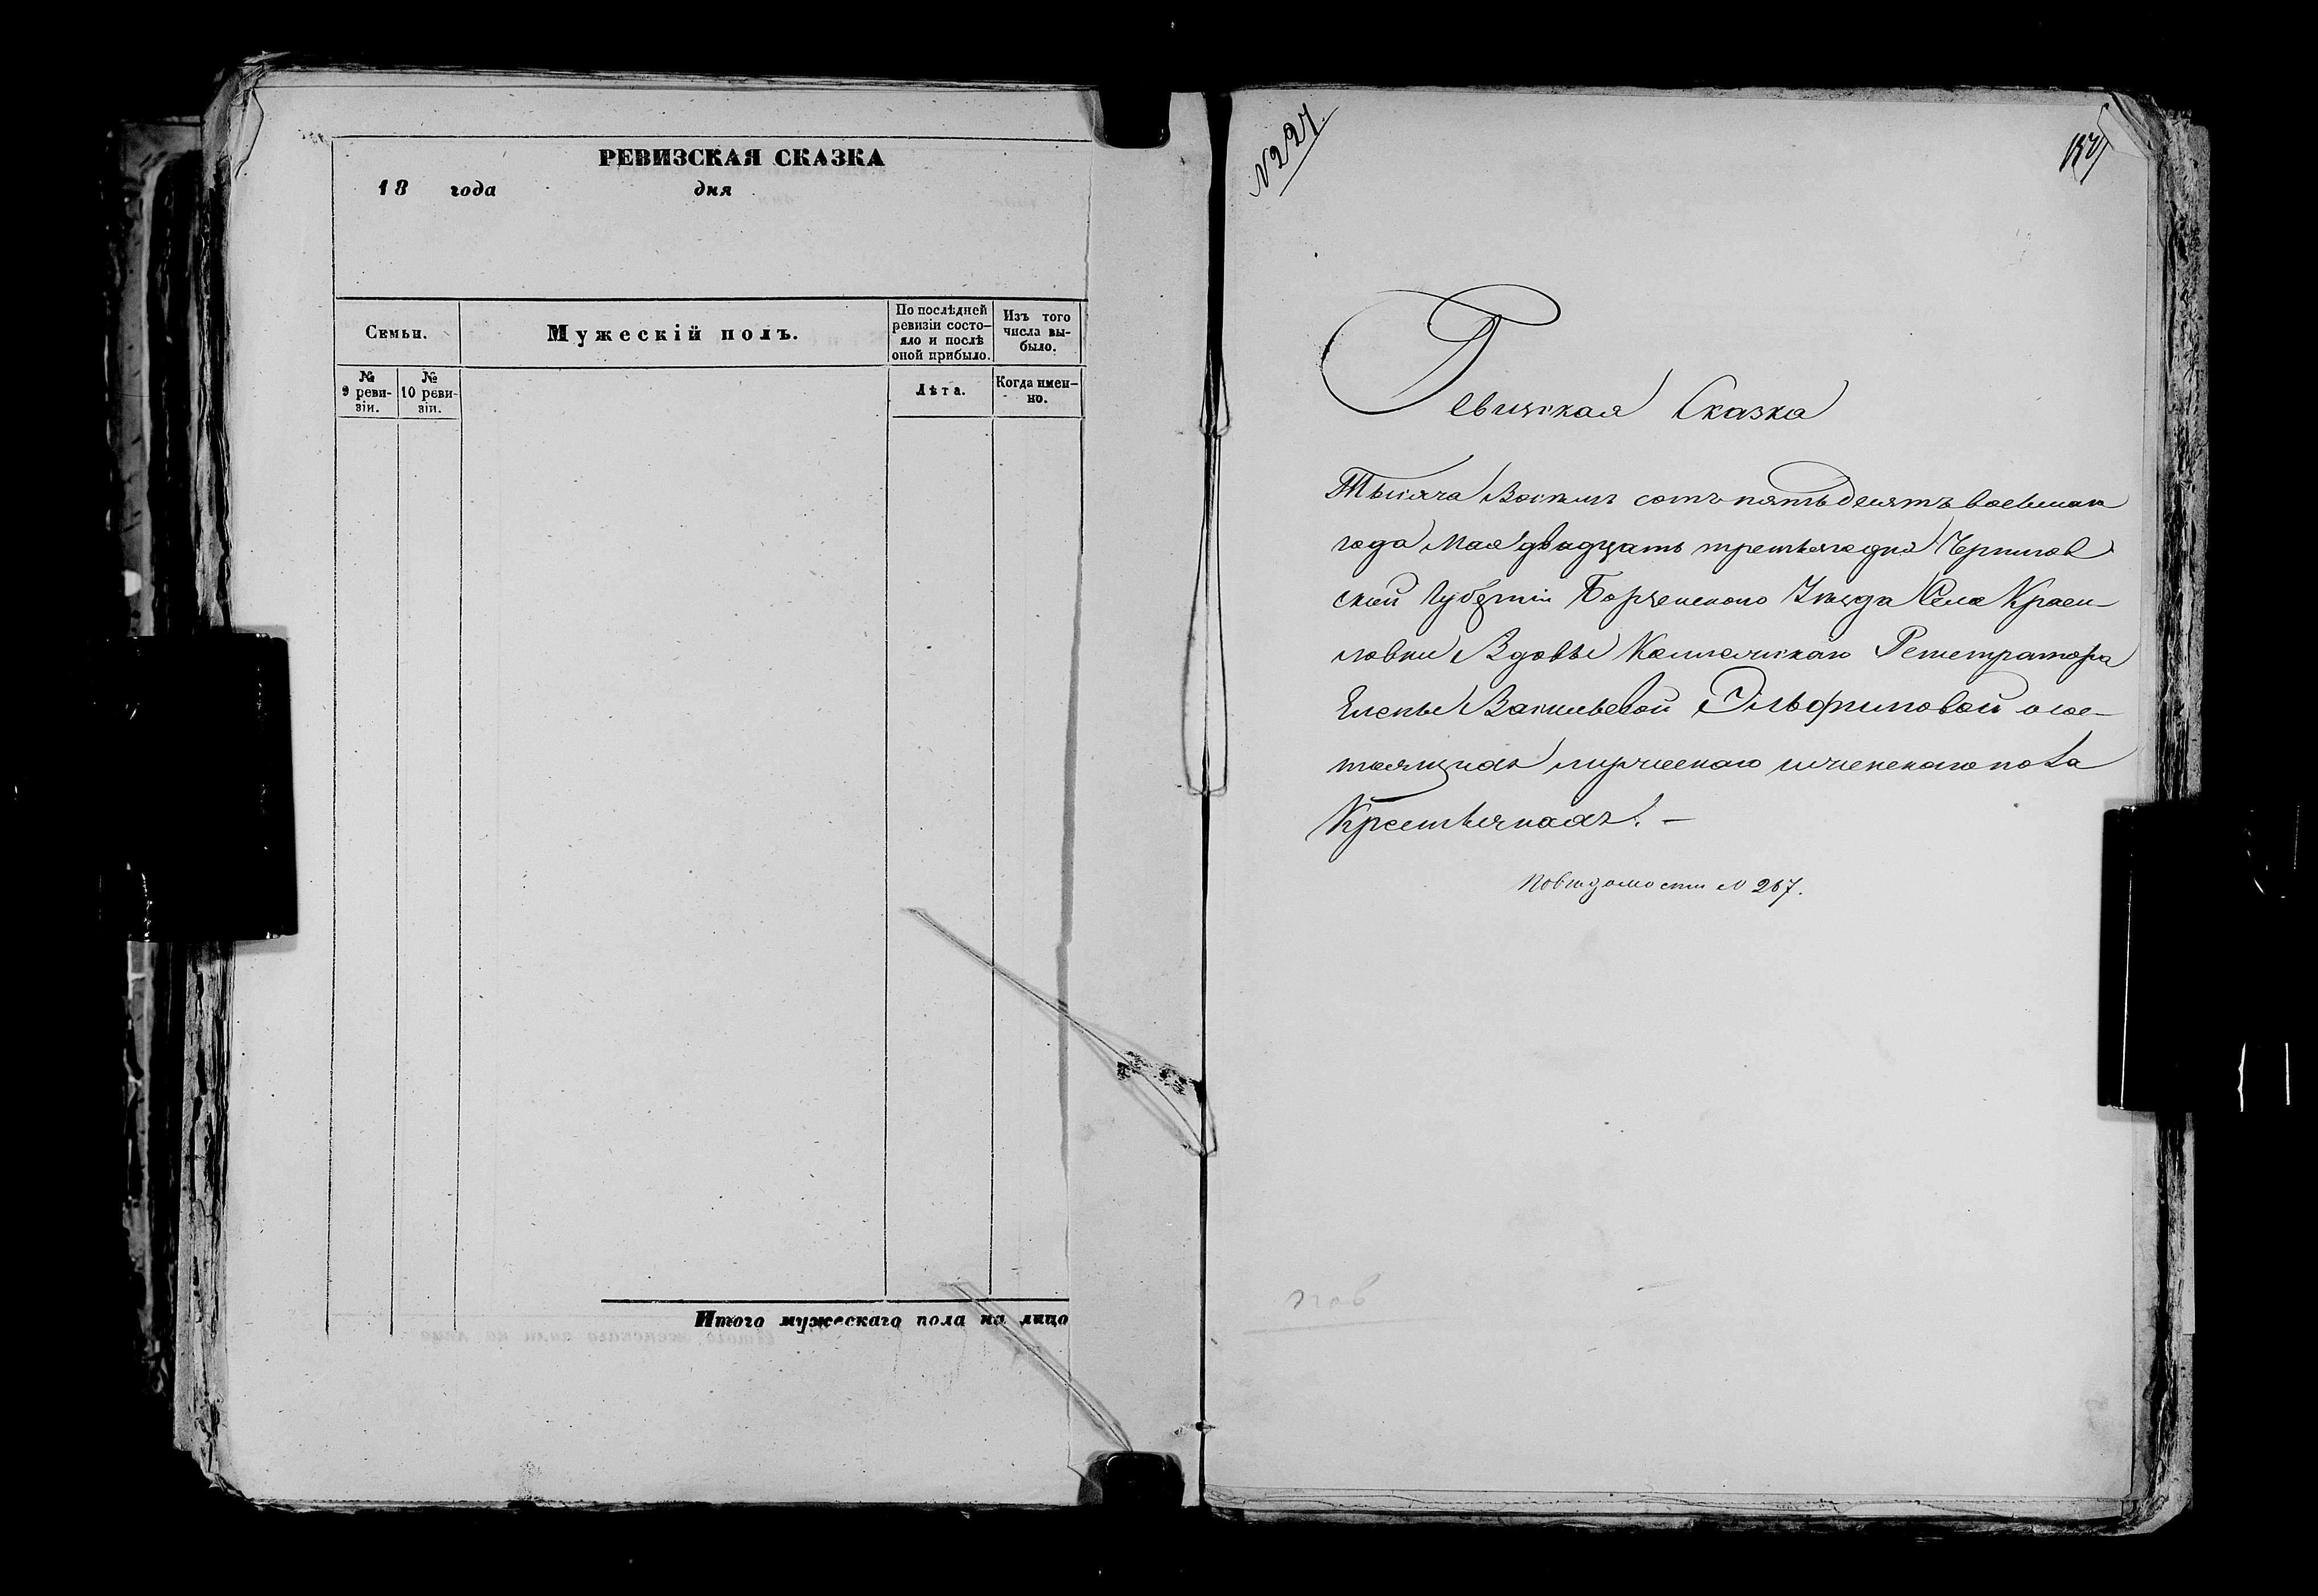 РЕВИЗСКАЯ СКАЗКА
18 года дня
Семьи.
Мужескій полъ.
По послѣдней
ревизіи состо-
яло и послѣ
оной прибыло.
Изъ того
числа вы-
было.
№
9 реви-
зіи.
№
10 реви-
зіи.
Лѣта.
Когда имен-
но.
Итого мужескаго пола на лицо
N 227.
Ревизская Сказка
Тысяча Восемь сотъ пятьдесятъ восьмаго
года Мая двадцать третьяго дня Чернигов
ской Губерніи Борзенского Уѣзда Села
Вдовы Коллежскаго Регистратора
Елены Васильевой о сос-
тоящихъ мужескаго и женскаго пола
Крестьянахъ. –
По вѣдомости N 267.